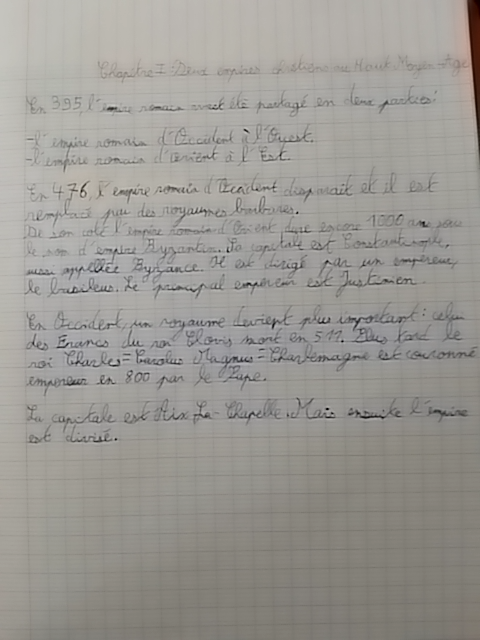 Chapitre I: Deux empires chrétiens au Haut Moyen-Age
En 395, l'empire romain avait été partagé en deux parties:
-l'empire romain d'Occident à l'Ouest.
-l'empire romain d'Orient à l'Est.
En 476, l'empire romain d'Occident disparait et il est
remplacé par des royaumes barbares.
De son coté l'empire romain d'Orient dure encore 1000 ans sous
le nom d'empire Byzantin. Sa capitale est Constantinople,
aussi appellée Byzance. Il est dirigé par un empereur,
le basileus. Le principal empereur est Justinien.
En Occident, un royaume devient plus important: celui
des Francs du roi Clovis mort en 511. Plus tard le
roi Charles=Carolus Magnus=Charlemagne est couronné
empereur en 800 par le Pape.
La capitale est Aix La-Chapelle. Mais ensuite l'empire
est divisé.